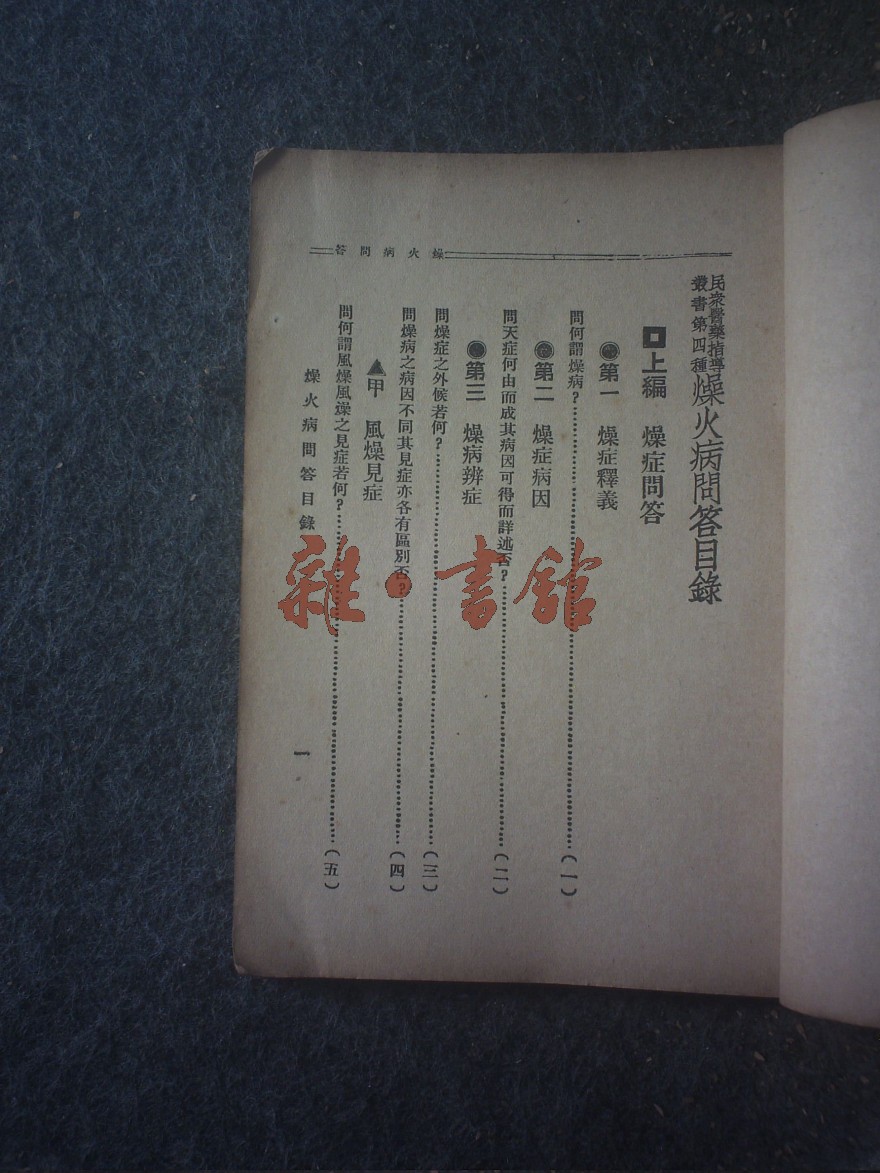 燥火病問答
民衆醫藥指導
叢書第四種
燥火病問答目錄
上編　燥症問答
第一　燥症釋義
問何謂燥病？……(一)
第二　燥症病因
問天症何由而成其病因可得而詳述否？……(二)
第三　燥病辨症
問燥症之外候若何？……(三)
問燥病之病因不同其見症亦各有區別否？……(四)
▲甲　風燥見症
問何謂風燥風燥之見症若何？……(五)
燥火病問答目錄　一
雜·書館